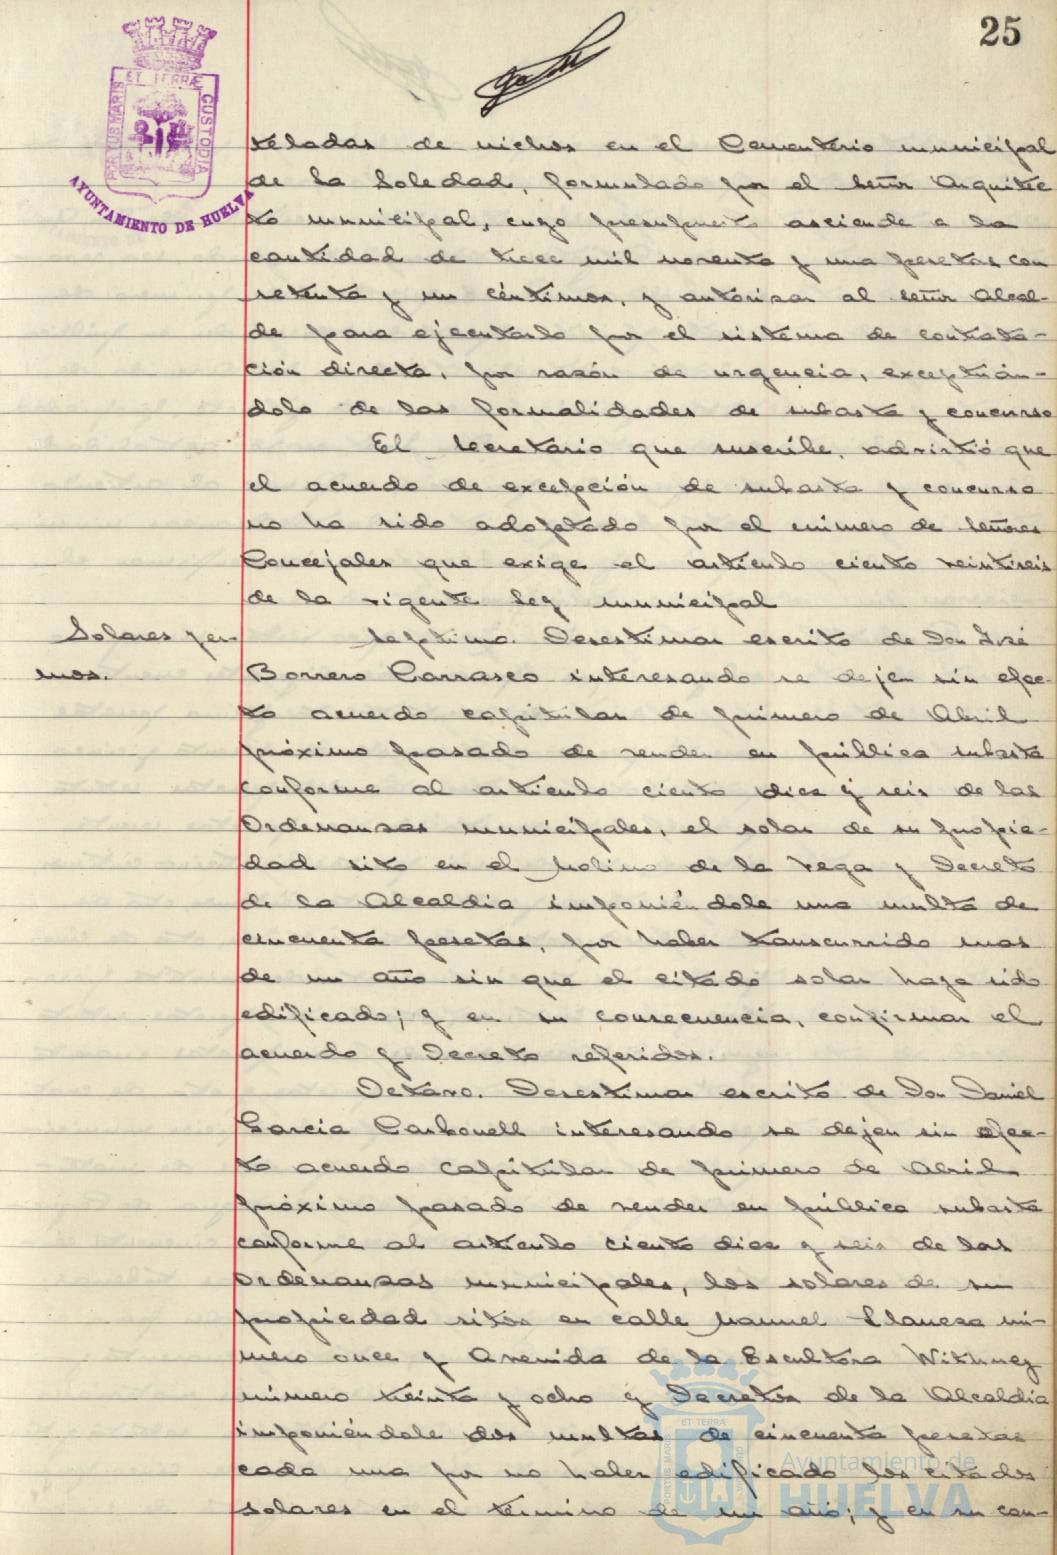 25
PORTUS MARIS
ET TERRÆ
CUSTODIA
AYUNTAMIENTO DE HUELVA
teladas de nichos en el Cementerio municipal
de la Soledad, formulado por el señor Arquitec
to municipal, cuyo presupuesto asciende a la
cantidad de trece mil noventa y una pesetas con
setenta y un céntimos, y autorizar al señor Alcal-
de para ejecutarlo por el sistema de contrata-
ción directa, por razón de urgencia, exceptuán-
dolo de las formalidades de subasta y concurso
El Secretario que suscribe, advirtió que
el acuerdo de excepción de subasta y concurso
no ha sido adoptado por el número de señores
Concejales que exige el artículo ciento veintiseis
de la vigente Ley municipal
Solares yer-
mos.
Septimo. Desestimar escrito de Don José
Borrero Carrasco interesando se dejen sin efec-
to acuerdo capitular de primero de Abril
próximo pasado de vender en pública subasta
conforme al artículo ciento diez y seis de las
Ordenanzas municipales, el solar de su propie-
dad sito en el Molino de la Vega y Decreto
de la Alcaldía imponiéndole una multa de
cincuenta pesetas, por haber transcurrido mas
de un año sin que el citado solar haya sido
edificado; y en su consecuencia, confirmar el
acuerdo y Decreto referidos.
Octavo. Desestimar escrito de Don Daniel
García Carbonell interesando se dejen sin efec-
to acuerdo capitular de primero de Abril
próximo pasado de vender en pública subasta
conforme al artículo ciento diez y seis de las
Ordenanzas municipales, los solares de su
propiedad sitos en calle Manuel Llaneza nú-
mero once y Avenida de la Escultora Withney
número treinta y ocho y Decretos de la Alcaldía
imponiéndole dos multas de cincuenta pesetas
cada una por no haber edificado los citados
solares en el término de un año; y en su con-
Ayuntamiento de
HUELVA